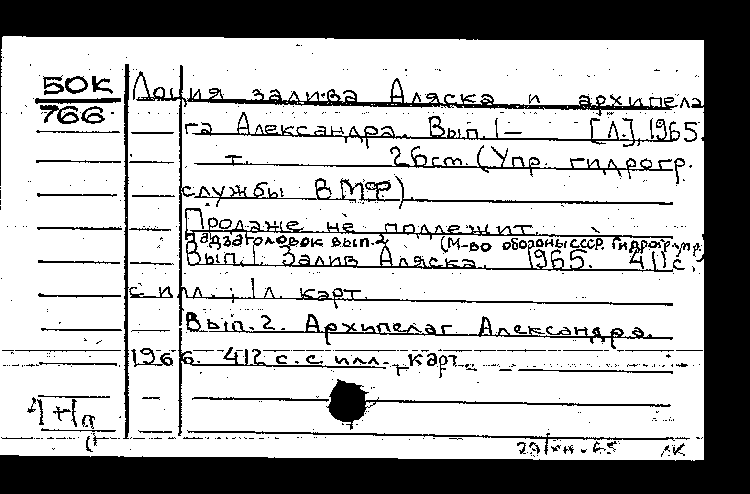 БОК Лоция залива Аляска и архипела
766 га Александра. Вып. 1 – [Л.], 1965.
т. 26 см. (Упр. гидрогр.
службы ВМФ).
Продаже не подлежит.
Надзаголовок вып. 2 (М-во обороны СССР. Гидрогр. упр.)
Вып. 1. Залив Аляска. 1965. 411 с.
с илл.; 1 л. карт.
Вып. 2. Архипелаг Александра.
1966. 412 с. с илл., карт.
29/XII-65 ЛК